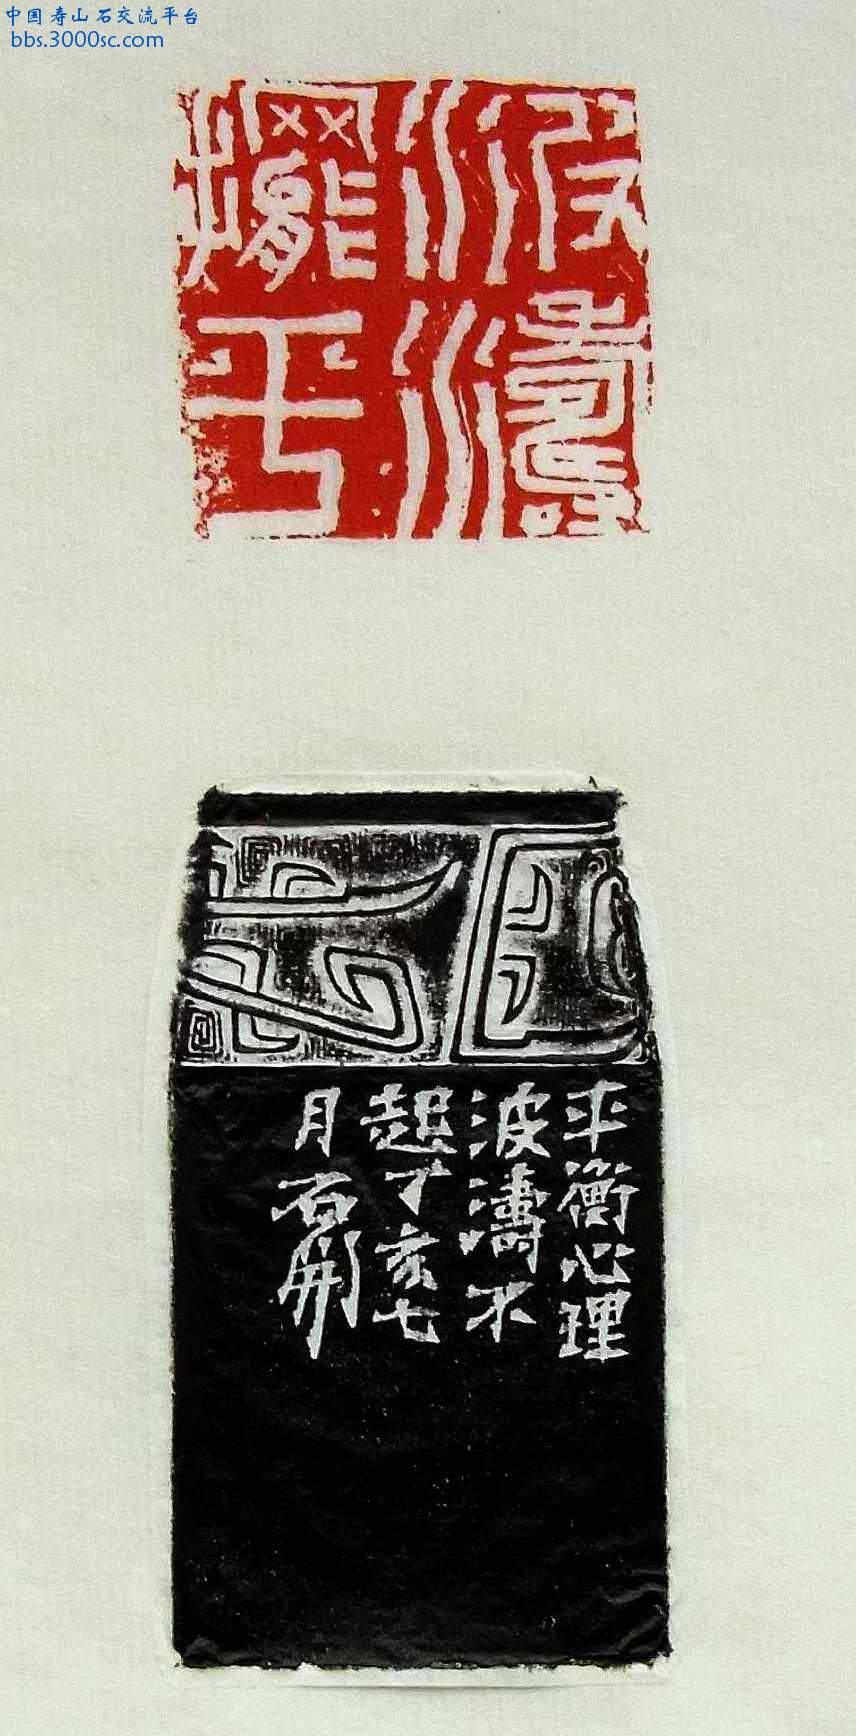 中国寿山石交流平台
bbs.3000sc.com
波濤
擺平
平衡心理
波濤不
起丁亥七
月石開